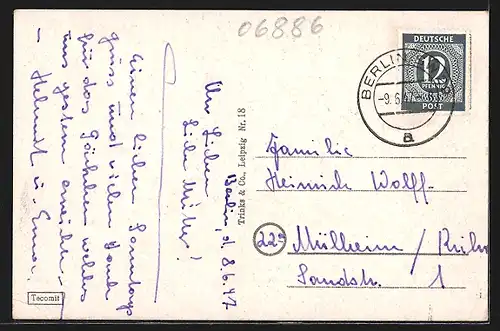 06886
DEUTSCHE
12
PFENNIG
POST
BERLIN
-9.6.47
a
Trinks & Co., Leipzig Nr. 18
Tecomit
Berlin, d. 8.6.47
Ihr Lieben
Liebe Mutter!
Einen lieben Sonntags
gruss und vielen Dank
für das
uns gestern
– Helmut u. Erna.
Familie
Heinrich Wolff.
22a Mülheim / Ruhr
Sandstr. 1